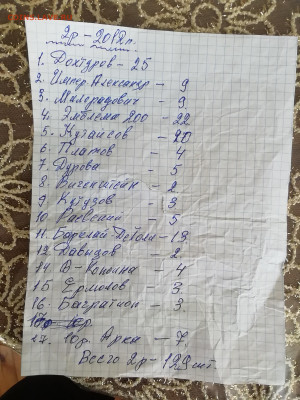 2р - 2012г.
1. Доктуров - 25
2. Импер. Александр - 9
3. Милорадович - 9
4. Эмблема 200 - 22
5. Кутайсов - 20
6. Платов - 4
7. Дурова - 5
8. Витгенштейн - 2
9. Кутузов - 3
10 Раевский - 5
11. Барклай-Де-Толли - 13
12 Давыдов - 2
14 В - Кожина - 4
15 Ермолов - 3
16. Багратион - 3.
17. 10р. Арки - 7
Всего 2р - 129 шт.